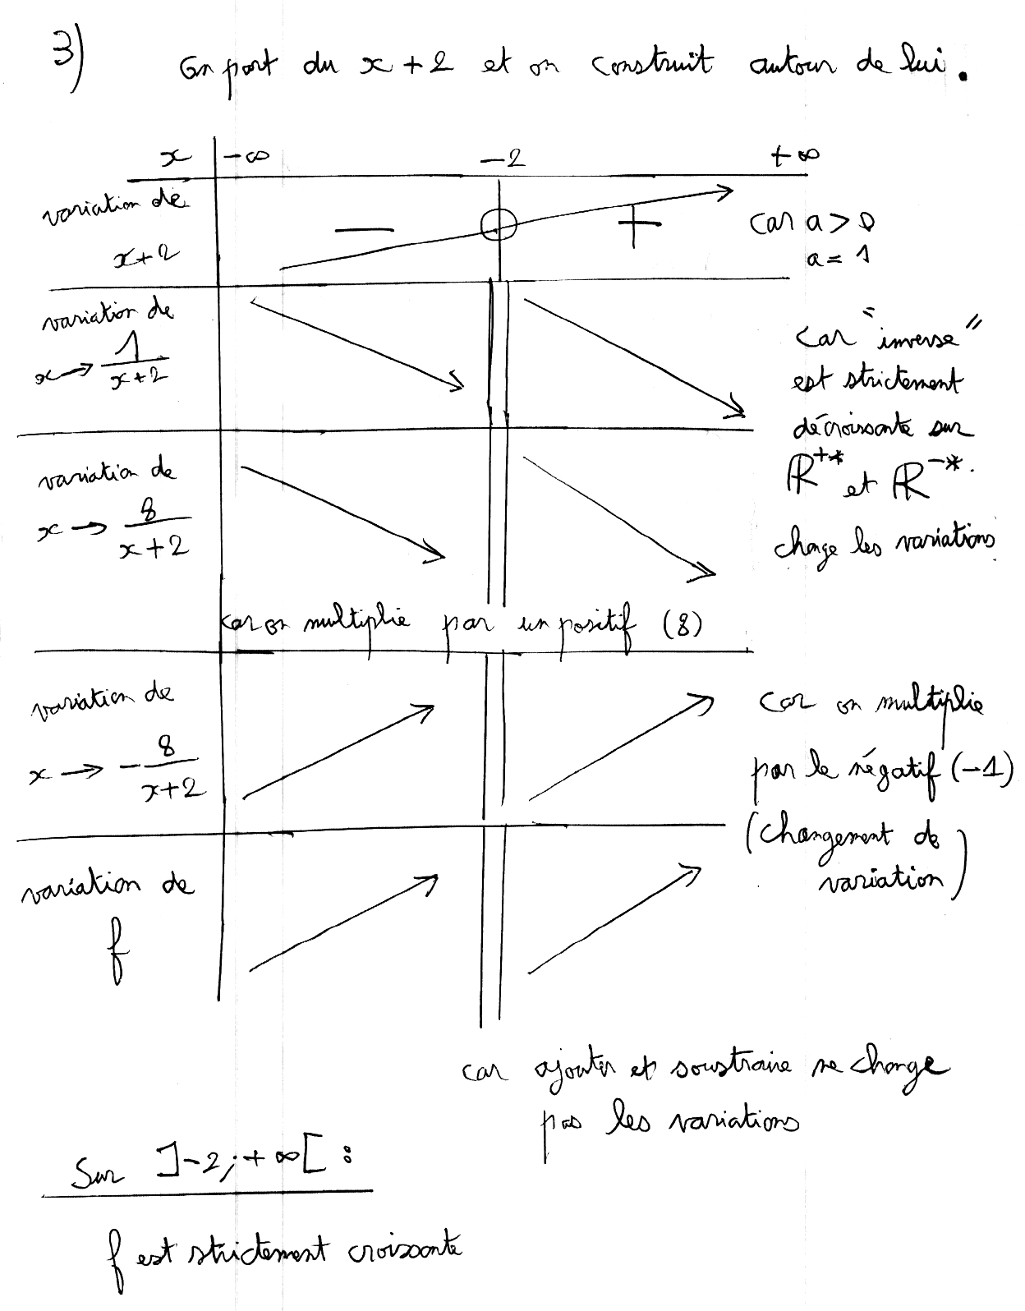 3) On part du x+2 et on construit autour de lui.
x -∞ -2 +∞
variation de
x+2
- + car a > 0
a = 1
variation de
x → 1/(x+2)
car "inverse"
est strictement
décroissante sur
ℝ+* et ℝ-*.
change les variations
variation de
x → 8/(x+2)
car on multiplie par un positif (8)
variation de
x → -8/(x+2)
car on multiplie
par le négatif (-1)
(changement de
variation)
variation de
f
car ajouter et soustraire ne change
pas les variations
Sur ]-2;+∞[ :
f est strictement croissante